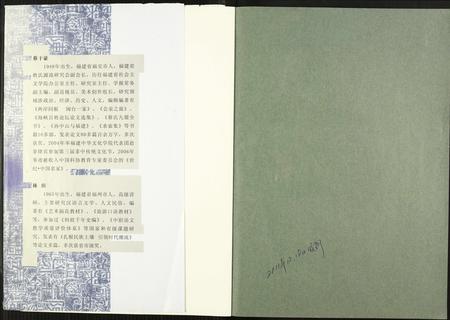 蔡干豪
1949年出生，福建省福安市人，福建省
姓氏源流研究会副会长，历任福建省社会主义
文学院办公室主任、研究室主任、学报常务
副主编、副巡视员、美术创作组长，研究领
域涉政治、经济、历史、人文，编辑编著有
《两岸同根 闽台一家》、《会亲之旅》、
《海峡百姓论坛论文选集》、《蔡氏九儒全
书》、《孙中山与福建》、
书籍10多部，发表论文80多篇百余万字，多次
获奖。2004年率福建中华文化学院代表团赴
菲律宾参加第三届菲中传统文化节，2006年
等首批收入中国科协教育专家委员会的《世
纪•中国名家》。
林
1965年出生，福建省福州市人，高级讲
师，主要研究汉语言文学、人文民俗，编
著有《艺术插花教材》、《旅游口语教材》
等，参加过《妈祖千年史编》、《中职语文
教学质量评价体系》等国家和省级课题研
究，发表有《扎根民族土壤 引领时代潮流》
等论文多篇，多次获省市级奖。
2011年12.